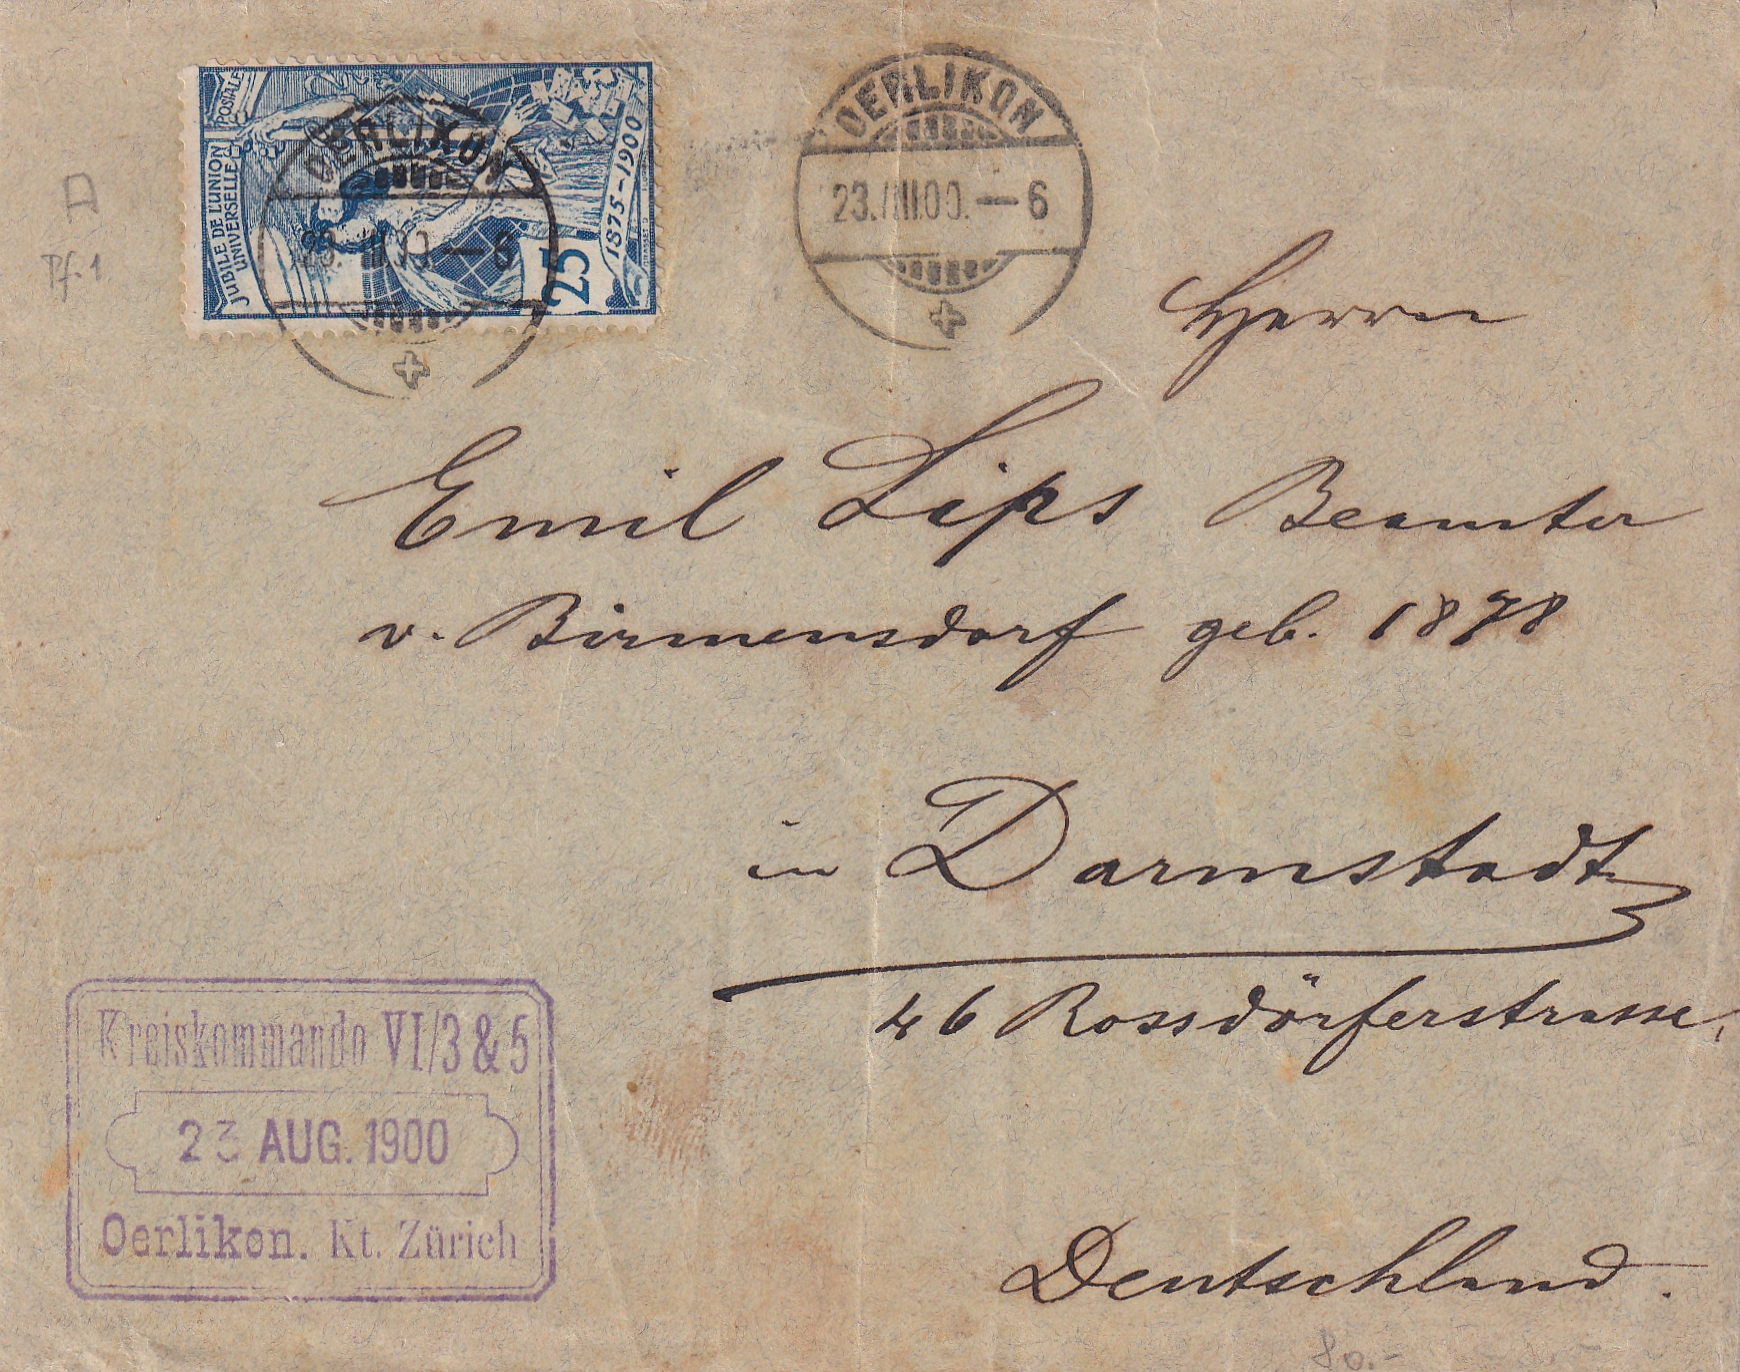 JUBILÉ DE L'UNION POSTALE
UNIVERSELLE
1875-1900
25
OERLIKON
OERLIKON
23.VIII.00.—6
A
Pf. 1
Herrn
Emil Lips Beamter
v. Birmensdorf geb. 1878
in Darmstadt
46 Rossdörferstrasse,
Deutschland.
Kreiskommando VI/3 & 5
23 AUG. 1900
Oerlikon. Kt. Zürich
80.-